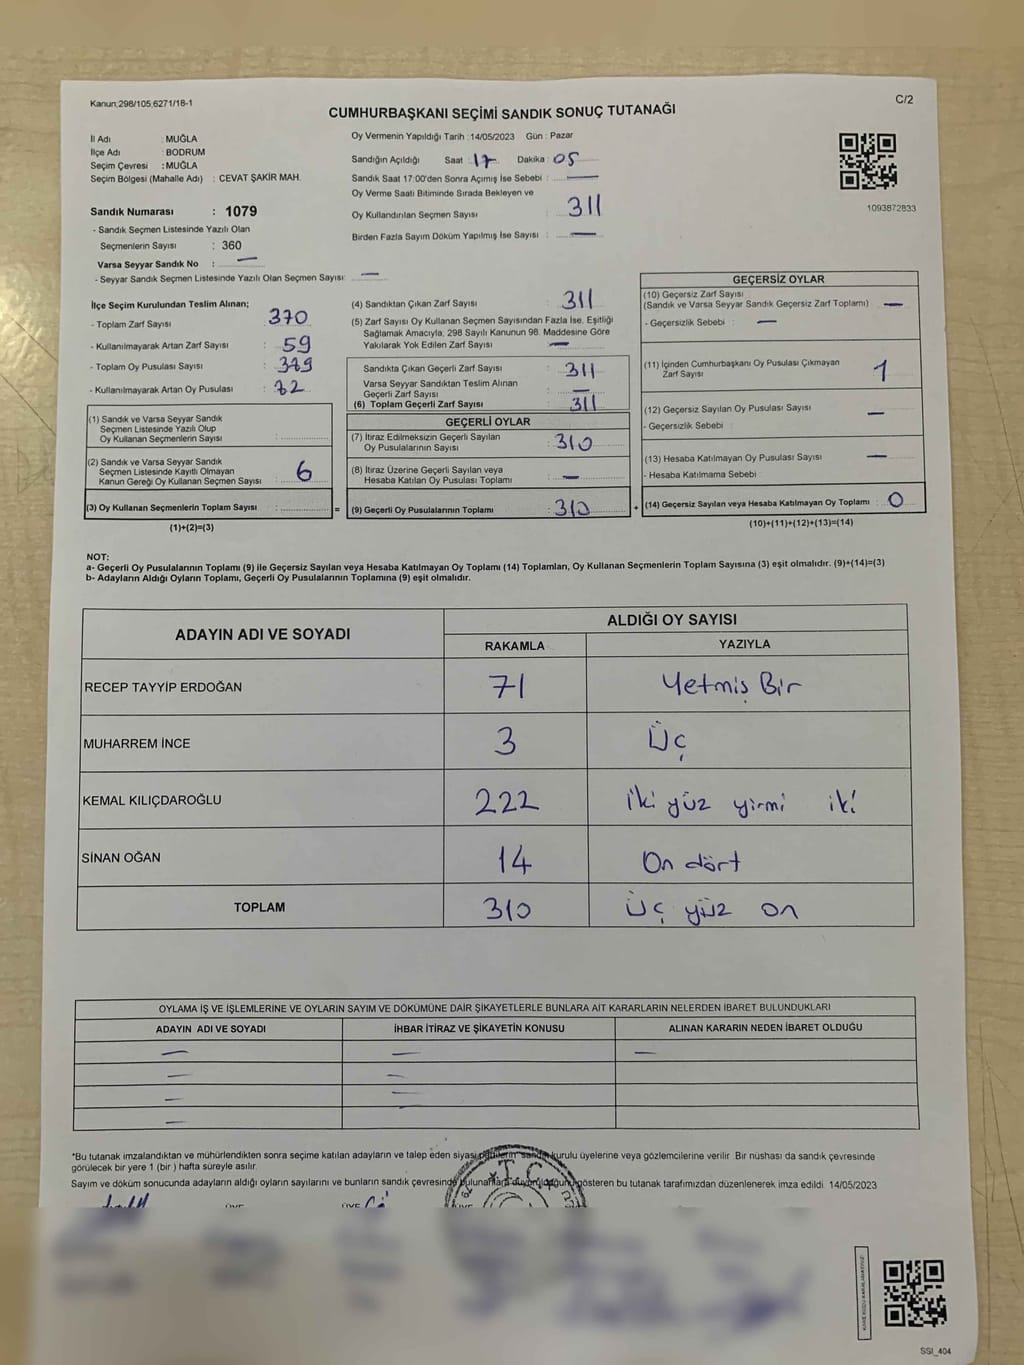 Kanun;298/105;6271/18-1
C/2
CUMHURBAŞKANI SEÇİMİ SANDIK SONUÇ TUTANAĞI
İl Adı : MUĞLA
İlçe Adı : BODRUM
Seçim Çevresi : MUĞLA
Seçim Bölgesi (Mahalle Adı) : CEVAT ŞAKİR MAH.
Oy Vermenin Yapıldığı Tarih :14/05/2023 Gün : Pazar
Sandığın Açıldığı Saat : 17 Dakika : 05
Sandık Saat 17:00'den Sonra Açımış İse Sebebi : —
Oy Verme Saati Bitiminde Sırada Bekleyen ve
Oy Kullandırılan Seçmen Sayısı : 311
Birden Fazla Sayım Döküm Yapılmış İse Sayısı : —
1093872833
Sandık Numarası : 1079
- Sandık Seçmen Listesinde Yazılı Olan
Seçmenlerin Sayısı : 360
Varsa Seyyar Sandık No : —
- Seyyar Sandık Seçmen Listesinde Yazılı Olan Seçmen Sayısı: —
İlçe Seçim Kurulundan Teslim Alınan;
- Toplam Zarf Sayısı : 370
- Kullanılmayarak Artan Zarf Sayısı : 59
- Toplam Oy Pusulası Sayısı :
- Kullanılmayarak Artan Oy Pusulası :
(1) Sandık ve Varsa Seyyar Sandık
Seçmen Listesinde Yazılı Olup
Oy Kullanan Seçmenlerin Sayısı :
(2) Sandık ve Varsa Seyyar Sandık
Seçmen Listesinde Kayıtlı Olmayan
Kanun Gereği Oy Kullanan Seçmen Sayısı : 6
(3) Oy Kullanan Seçmenlerin Toplam Sayısı : =
(1)+(2)=(3)
(4) Sandıktan Çıkan Zarf Sayısı : 311
(5) Zarf Sayısı Oy Kullanan Seçmen Sayısından Fazla İse, Eşitliği
Sağlamak Amacıyla, 298 Sayılı Kanunun 98. Maddesine Göre
Yakılarak Yok Edilen Zarf Sayısı : —
Sandıkta Çıkan Geçerli Zarf Sayısı : 311
Varsa Seyyar Sandıktan Teslim Alınan
Geçerli Zarf Sayısı : —
(6) Toplam Geçerli Zarf Sayısı : 311
GEÇERLİ OYLAR
(7) İtiraz Edilmeksizin Geçerli Sayılan
Oy Pusulalarının Sayısı : 310
(8) İtiraz Üzerine Geçerli Sayılan veya
Hesaba Katılan Oy Pusulası Toplamı : —
(9) Geçerli Oy Pusulalarının Toplamı : 310 +
GEÇERSİZ OYLAR
(10) Geçersiz Zarf Sayısı
(Sandık ve Varsa Seyyar Sandık Geçersiz Zarf Toplamı) : —
- Geçersizlik Sebebi : —
(11) İçinden Cumhurbaşkanı Oy Pusulası Çıkmayan
Zarf Sayısı : 1
(12) Geçersiz Sayılan Oy Pusulası Sayısı : —
- Geçersizlik Sebebi :
(13) Hesaba Katılmayan Oy Pusulası Sayısı : —
- Hesaba Katılmama Sebebi :
(14) Geçersiz Sayılan veya Hesaba Katılmayan Oy Toplamı : 0
(10)+(11)+(12)+(13)=(14)
NOT:
a- Geçerli Oy Pusulalarının Toplamı (9) ile Geçersiz Sayılan veya Hesaba Katılmayan Oy Toplamı (14) Toplamları, Oy Kullanan Seçmenlerin Toplam Sayısına (3) eşit olmalıdır. (9)+(14)=(3)
b- Adayların Aldığı Oyların Toplamı, Geçerli Oy Pusulalarının Toplamına (9) eşit olmalıdır.
ADAYIN ADI VE SOYADI ALDIĞI OY SAYISI
RAKAMLA YAZIYLA
RECEP TAYYİP ERDOĞAN 71 Yetmiş Bir
MUHARREM İNCE 3 Üç
KEMAL KILIÇDAROĞLU 222 iki yüz yirmi iki
SİNAN OĞAN 14 On dört
TOPLAM 310 Üç yüz on
OYLAMA İŞ VE İŞLEMLERİNE VE OYLARIN SAYIM VE DÖKÜMÜNE DAİR ŞİKAYETLERLE BUNLARA AİT KARARLARIN NELERDEN İBARET BULUNDUKLARI
ADAYIN ADI VE SOYADI İHBAR İTİRAZ VE ŞİKAYETİN KONUSU ALINAN KARARIN NEDEN İBARET OLDUĞU
— — —
— —
— —
—
*Bu tutanak imzalandıktan ve mühürlendikten sonra seçime katılan adayların ve talep eden siyasi partilerin sandık kurulu üyelerine veya gözlemcilerine verilir. Bir nüshası da sandık çevresinde
görülecek bir yere 1 (bir ) hafta süreyle asılır.
Sayım ve döküm sonucunda adayların aldığı oyların sayılarını ve bunların sandık çevresinde bulunanlara duyurulduğunu gösteren bu tutanak tarafımızdan düzenlenerek imza edildi. 14/05/2023
T.C.
ÜYE ÜYE ÜYE
SSI_404